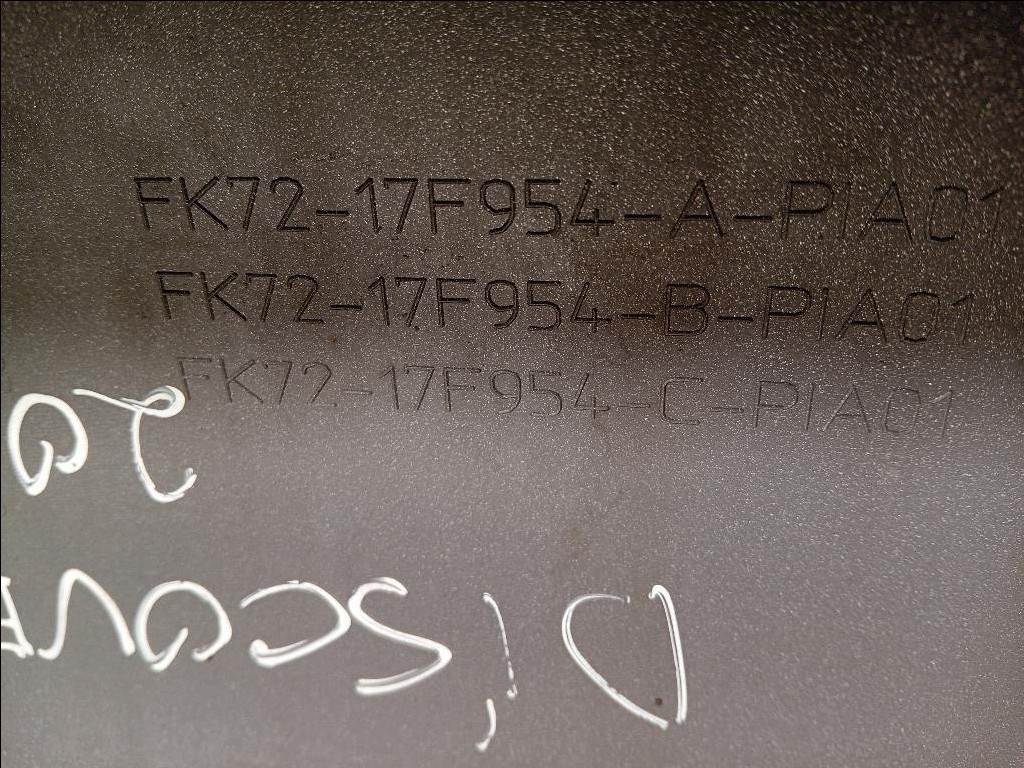 FK72-17F954-A-PIA01
FK72-17F954-B-PIA01
FK72-17F954-C-PIA01
Discov
20